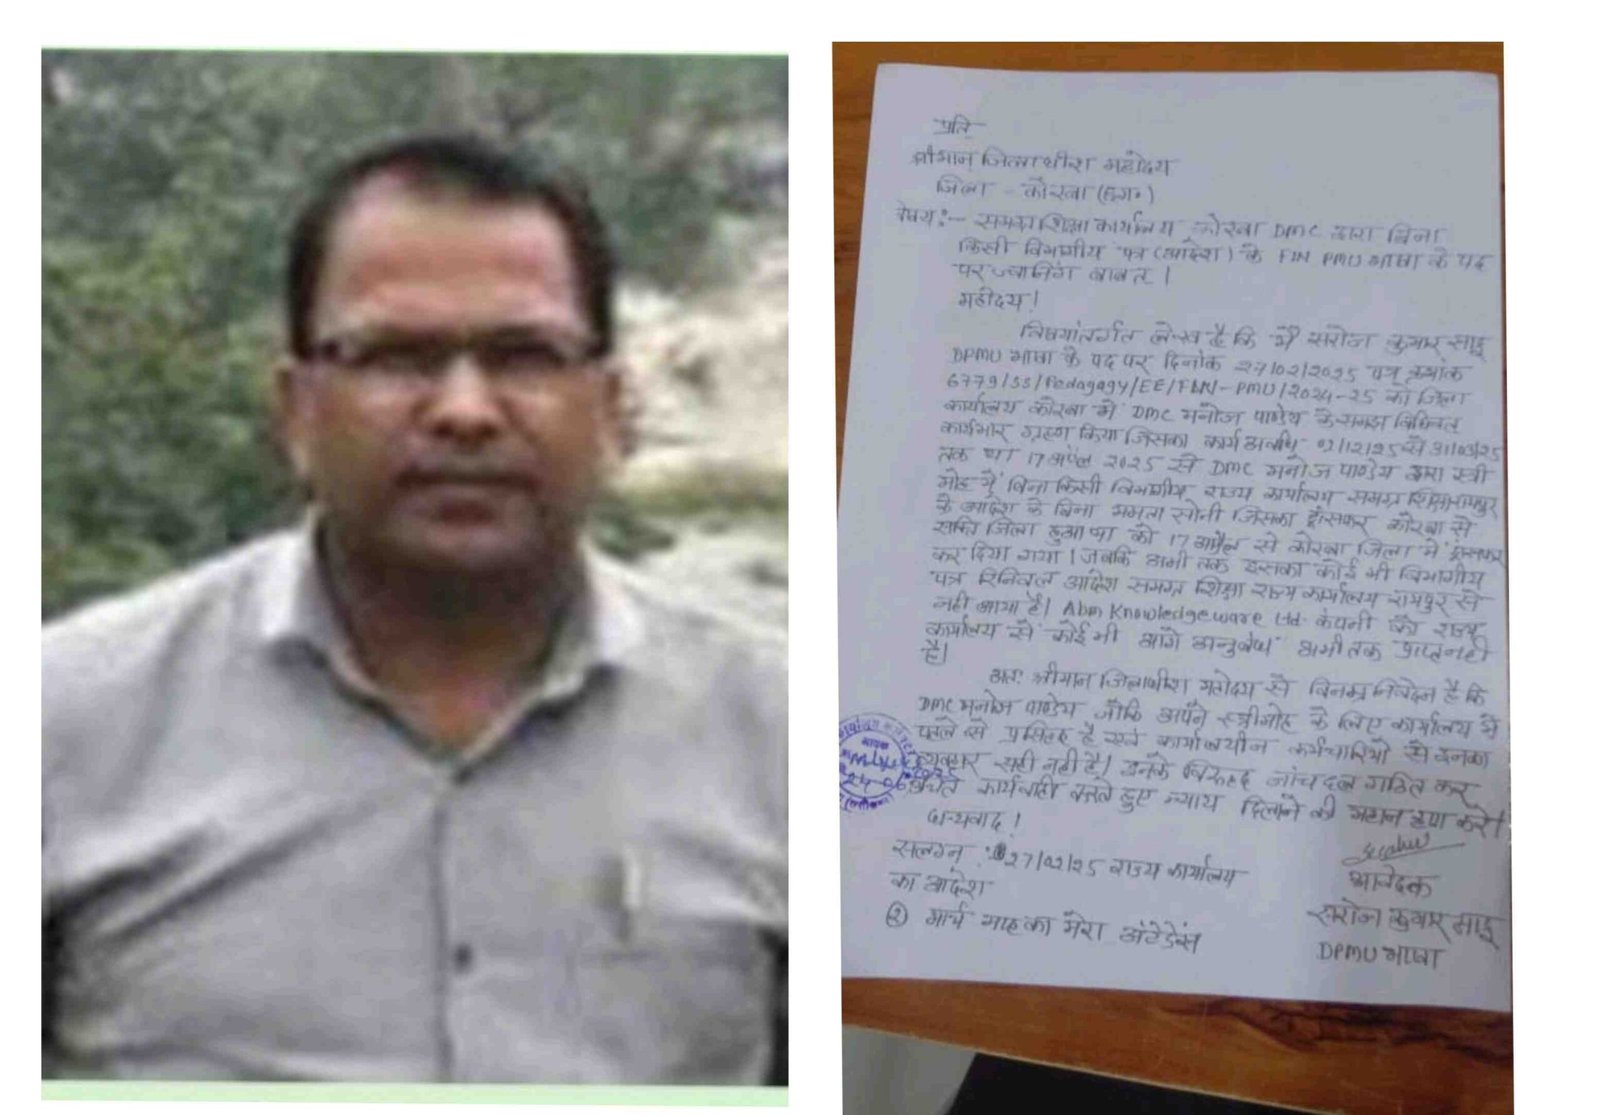 प्रति,
श्रीमान् जिलाधीश महोदय
जिला - कोरबा (छ.ग.)
विषय :- समग्र शिक्षा कार्यालय कोरबा DMC द्वारा बिना
किसी विभागीय पत्र (आदेश) के FLN PMU भाषा के पद
पर ज्वानिंग बाबत ।
महोदय !
विषयांतर्गत लेख है कि मैं सरोज कुमार साहू
DPMU भाषा के पद पर दिनांक 27/02/2025 पत्र क्रमांक
6779/SS/Pedagagy/EE/FLN-PMU/2024-25 का जिला
कार्यालय कोरबा में DMC मनोज पाण्डेय के समक्ष विधिवत
कार्यभार ग्रहण किया जिसका कार्य अवधि 02/12/25 से 31/03/25
तक था 17 अप्रैल 2025 से DMC मनोज पाण्डेय द्वारा स्त्री
मोह में बिना किसी विभागीय राज्य कार्यालय समग्र शिक्षा रायपुर
के आदेश के बिना ममता सोनी जिसका ट्रांसफर कोरबा से
सक्ति जिला हुआ था को 17 अप्रैल से कोरबा जिला में ट्रांसफर
कर दिया गया । जबकि अभी तक इसका कोई भी विभागीय
पत्र रिनिवल आदेश समग्र शिक्षा राज्य कार्यालय रायपुर से
नहीं आया है। Abm Knowledgeware Ltd. कंपनी को राज्य
कार्यालय से कोई भी आगे अनुबंध अभी तक प्राप्त नहीं
है।
अतः श्रीमान जिलाधीश महोदय से विनम्र निवेदन है कि
DMC मनोज पाण्डेय जोकि अपने स्त्रीमोह के लिए कार्यालय में
पहले से प्रसिद्ध है एवं कार्यालयीन कर्मचारियों से इनका
व्यवहार सही नहीं है। इनके विरुद्ध जांच दल गठित कर
उचित कार्यवाही करते हुए न्याय दिलाने की महान कृपा करें।
धन्यवाद !
संलग्न : 27/02/25 राज्य कार्यालय
का आदेश
② मार्च माह का मेरा अटेंडेंस
आवेदक
सरोज कुमार साहू
DPMU भाषा